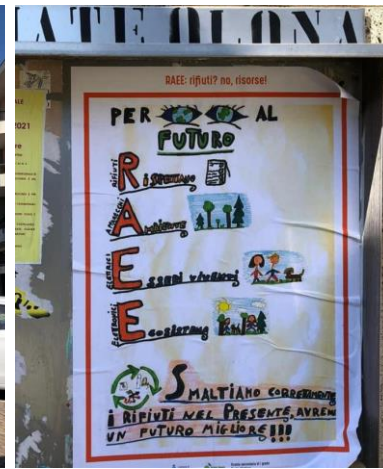 ATE OLONA
2021
RAEE: rifiuti? no, risorse!
PER AL
FUTURO
RIFIUTI
RISPETTIAMO
AMBIENTE
ESSERI VIVENTI
ECOSISTEMA
SMALTIAMO CORRETTAMENTE
I RIFIUTI NEL PRESENTE, AVREM
UN FUTURO MIGLIORE!!!